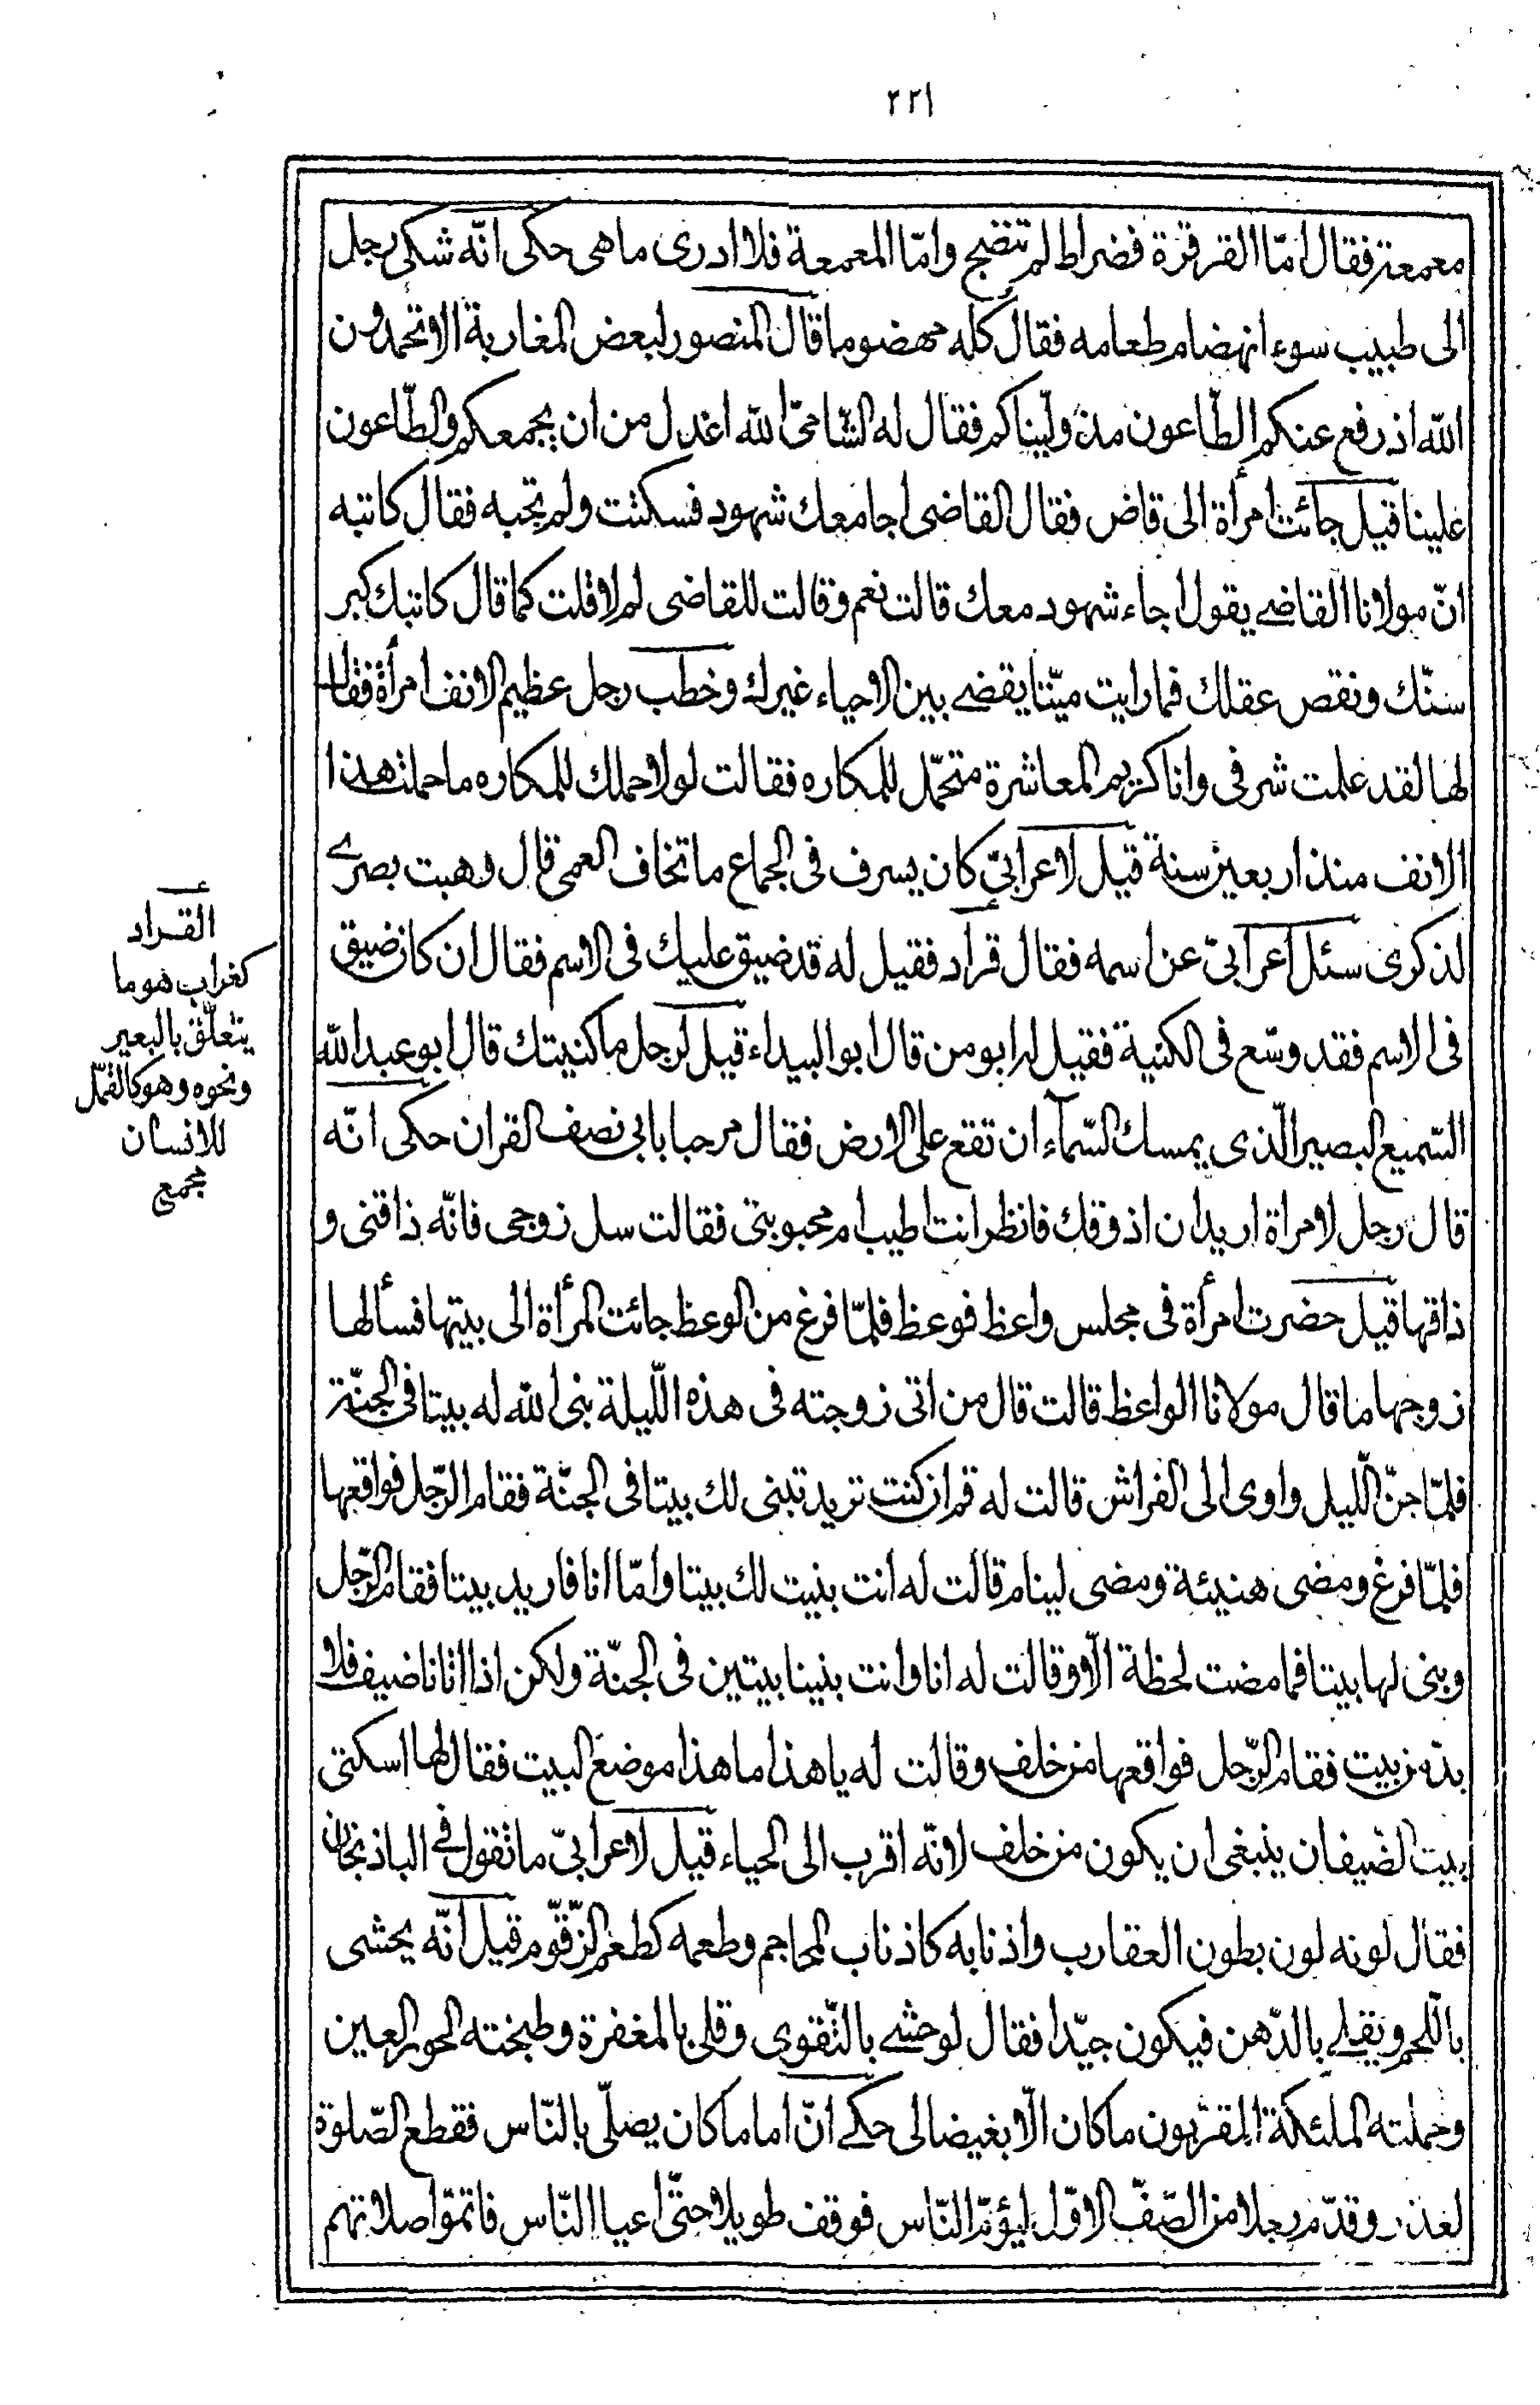 ٢٢١
معمعة فقال امّا القرقرة فضراط لم تنضج وامّا المعمعة فلا ادرى ما هى حكى انّه شكى رجل
الى طبيب سوء انهضام طعامه فقال كله مهضوما قال المنصور لبعض المغاربة الا تحمدون
الله اذ رفع عنكم الطّاعون منذ ولّيناكم فقال له الشّامىّ الله اعدل من ان يجمعكم والطّاعون
علينا قيل جائت امرأة الى قاض فقال القاضى اجامعك شهود فسكتت ولم تجبه فقال كاتبه
انّ مولانا القاضے يقول اجاء شهود معك قالت نعم وقالت للقاضى لم لا قلت كما قال كاتبك كبر
سنّك ونقص عقلك فما رايت ميّتا يقضے بين الاحياء غيرك وخطب رجل عظيم الانف امرأة فقال
لها لقد علمت شرفى وانا كريم المعاشرة متحمّل للمكاره فقالت لولا حملك للمكاره ما حملت هذا
الانف منذ اربعين سنة قيل لاعرابىّ كان يسرف فى الجماع ما تخاف العمى قال وهبت بصرے
لذكرى سئل اعرابىّ عن اسمه فقال قراد فقيل له قد ضيق عليك فى الاسم فقال ان كان ضيق
فى الاسم فقد وسّع فى الكنية فقيل له ابو من قال ابو البيداء قيل لرجل ما كنيتك قال ابو عبد الله
السّميع البصير الّذى يمسك السّمآء ان تقع على الارض فقال مرحبا بابى نصف القران حكى انّه
قال رجل لامراة اريد ان اذوقك فانظر انت اطيب ام محبوبتى فقالت سل زوجى فانّه ذاقنى و
ذاقها قيل حضرت امرأة فى مجلس واعظ فوعظ فلمّا فرغ من الوعظ جائت المرأة الى بيتها فسألها
زوجها ما قال مولانا الواعظ قالت قال من اتى زوجته فى هذه اللّيلة بنى الله له بيتا فى الجنّة
فلمّا جنّ اللّيل واوى الى الفراش قالت له قم ان كنت تريد تبنى لك بيتا فى الجنّة فقام الرّجل فواقعها
فلمّا فرغ ومضى هنيئة ومضى لينام قالت له انت بنيت لك بيتا وامّا انا فاريد بيتا فقام الرّجل
وبنى لها بيتا فما مضت لحظة الّا وقالت له انا وانت بنينا بيتين فى الجنّة ولكن اذا اتانا ضيف فلا
بدّ من بيت فقام الرّجل فواقعها من خلف وقالت له يا هذا ما هذا موضع البيت فقال لها اسكتى
بيت الضّيفان ينبغى ان يكون من خلف لانّه اقرب الى الحياء قيل لاعرابىّ ما تقول فے الباذنجان
فقال لونه لون بطون العقارب واذنابه كاذناب المحاجم وطعمه كطعم الزّقّوم قيل انّه يحشى
باللّحم ويقلے بالدّهن فيكون جيّدا فقال لو حشے بالتّقوى وقلى بالمغفرة وطبخته الحور العين
وحملته الملئكة المقرّبون ما كان الّا بغيضا لى حكے انّ اماما كان يصلّى بالنّاس فقطع الصّلوة
لعذر وقدّم رجلا من الصّفّ الاوّل ليؤمّ النّاس فوقف طويلا حتّى اعيا النّاس فاتمّوا صلاتهم
القراد
كغراب هو ما
يتعلّق بالبعير
ونحوه وهو كالقمّل
للانسان
مجمع